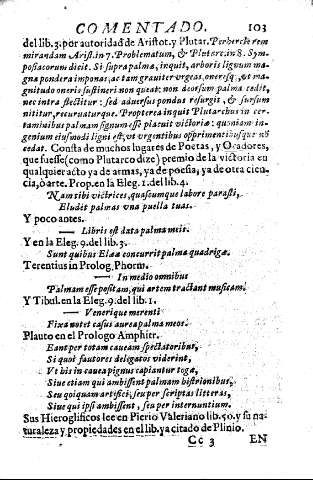 COMENTADO. 103
del lib. 3. por autoridad de Aristot. y Plutar. Perhercle rem
mirandam Arist. in 7. Problematum, & Plutarc. in 8. Sym-
posiacorum dicit. Si supra palma, inquit, arboris lignum ma-
gna pondera imponas, ac tam grauiter vrgeas, oneresq;, vt ma-
gnitudo oneris sustineri non queat: non deorsum palma cedit,
nec intra flectitur: sed aduersus pondus resurgit, & sursum
nititur, recuruaturque. Propterea inquit Plutarchus in cer-
taminibus palmam signum esse placuit victoriæ: quoniam in-
genium eiusmodi ligni est, vt vrgentibus opprimentibusque nō
cedat. Consta de muchos lugares de Poetas, y Oradores,
que fuesse (como Plutarco dize) premio de la victoria en
qualquier acto ya de armas, ya de poesia, ya de otra cien-
cia, o arte. Prop. en la Eleg. 1. del lib. 4.
Nam tibi victrices, quascumque labore parasti,
Eludit palmas vna puella tuas.
Y poco antes.
— Libris est data palma meis.
Y en la Eleg. 9. del lib. 3.
Sunt quibus Elææ concurrit palma quadrigæ.
Terentius in Prolog. Phorm.
— In medio omnibus
Palmam esse positam, qui artem tractant musicam.
Y Tibul. en la Eleg. 9. del lib. 1.
— Venerique merenti
Fixa notet casus aurea palma meos.
Plauto en el Prologo Amphitr.
Eant per totam caueam spectatoribus,
Si qunt fautores delegatos viderint,
Vt his in cauea pignus capiantur togæ,
Siue etiam qui ambissent palmam histrionibus,
Seu quiquam artifici, seu per scriptas litteras,
Siue qui ipsi ambissent, seu per internuntium.
Sus Hieroglificos lee en Pierio Valeriano lib. 50. y su na-
turaleza y propiedades en el lib. ya citado de Plinio.
Cc 3 EN